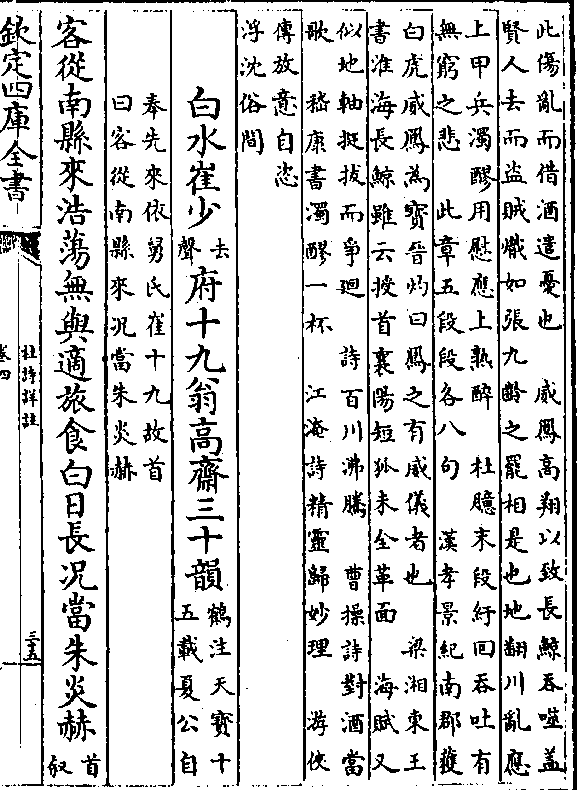 此傷亂而借酒遣憂也　威鳳高翔以致長鯨吞噬蓋
賢人去而盜賊熾如張九齡之罷相是也地翻川亂應
上甲兵濁醪用慰應上熟醉　杜臆末段紆回吞吐有
無窮之悲　此章五段段各八句　漢孝景紀南郡獲
白虎威鳳為寶晉灼曰鳳之有威儀者也　梁湘東王
書淮海長鯨雖云授首襄陽短狐未全革面　海賦又
似地軸挺拔而爭迴　詩百川沸騰　曹操詩對酒當
歌　嵇康書濁醪一杯　江淹詩精靈歸妙理　游俠
傳放意自恣
浮沈俗間
白水崔少去聲府十九翁高齋三十韻鶴注天寶十五載夏公自
奉先來依舅氏崔十九故首
曰客從南縣來況當朱炎赫
客從南縣來浩蕩無與適旅食白日長況當朱炎赫首叙
欽定四庫全書
杜詩詳註
卷四
三五